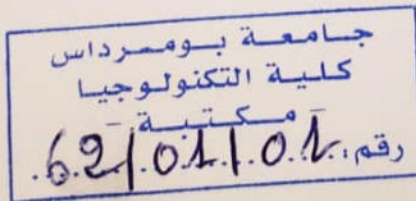 جامعة بومرداس
كلية التكنولوجيا
- مكتبة -
رقم: 62/01/01